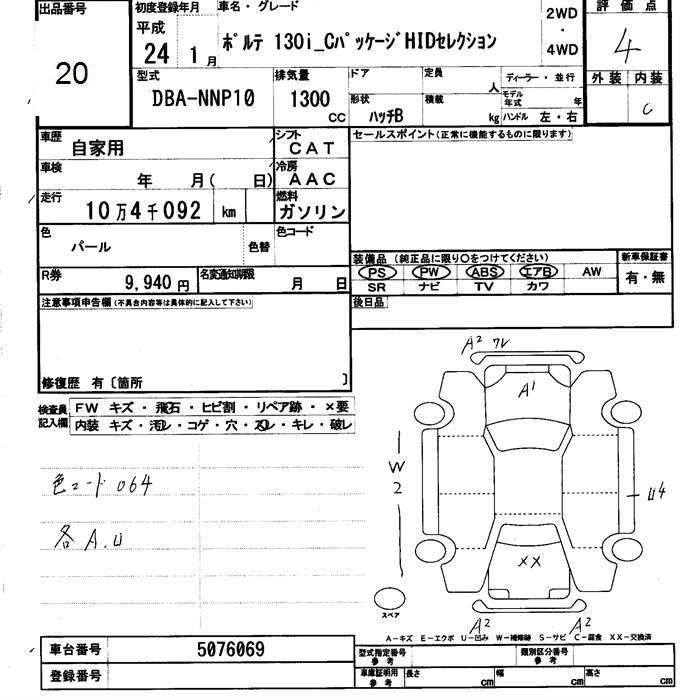 出品番号
20
初度登録年月
平成
24 1月
車名・グレード
ポルテ 130i_CパッケージHIDセレクション
2WD
・
4WD
評価点
4
外装 内装
C
型式
DBA-NNP10
排気量
1300
CC
ドア
定員
人
ディーラー・並行
モデル年式
年
形状
ハッチB
積載
kg
ハンドル 左・右
車歴
自家用
シフト
CAT
車検
年 月( 日)
冷房
AAC
走行
10万4千092 km
燃料
ガソリン
色
パール
色替
色コード
R券
9,940円
名変通知期限
月 日
セールスポイント(正常に機能するものに限ります)
装備品 (純正品に限り○をつけてください)
PS PW ABS エアB AW
SR ナビ TV カワ
新車保証書
有・無
後日品
注意事項申告欄 (不具合内容等は具体的に記入して下さい)
修復歴 有〔箇所 〕
検査員
記入欄
FW キズ・飛石・ヒビ割・リペア跡・×要
内装 キズ・汚レ・コゲ・穴・スレ・キレ・破レ
色コード 064
各 A.U
A2 ワレ
A1
W
2
U4
XX
スペア
A2 A2
A−キズ E−エクボ U−凹み W−補修跡 S−サビ C−腐食 XX−交換済
車台番号
5076069
登録番号
型式指定番号
参考
類別区分番号
参考
車庫証明用
参考
長さ
cm
幅
cm
高さ
cm